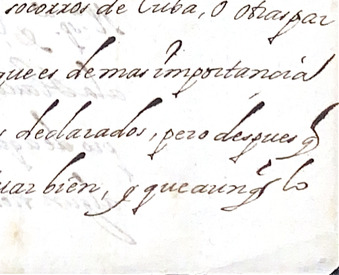 socorros de Cuba, o otras par
que es de mas importancia
declarados, pero despues q
uar bien, y que aunq lo